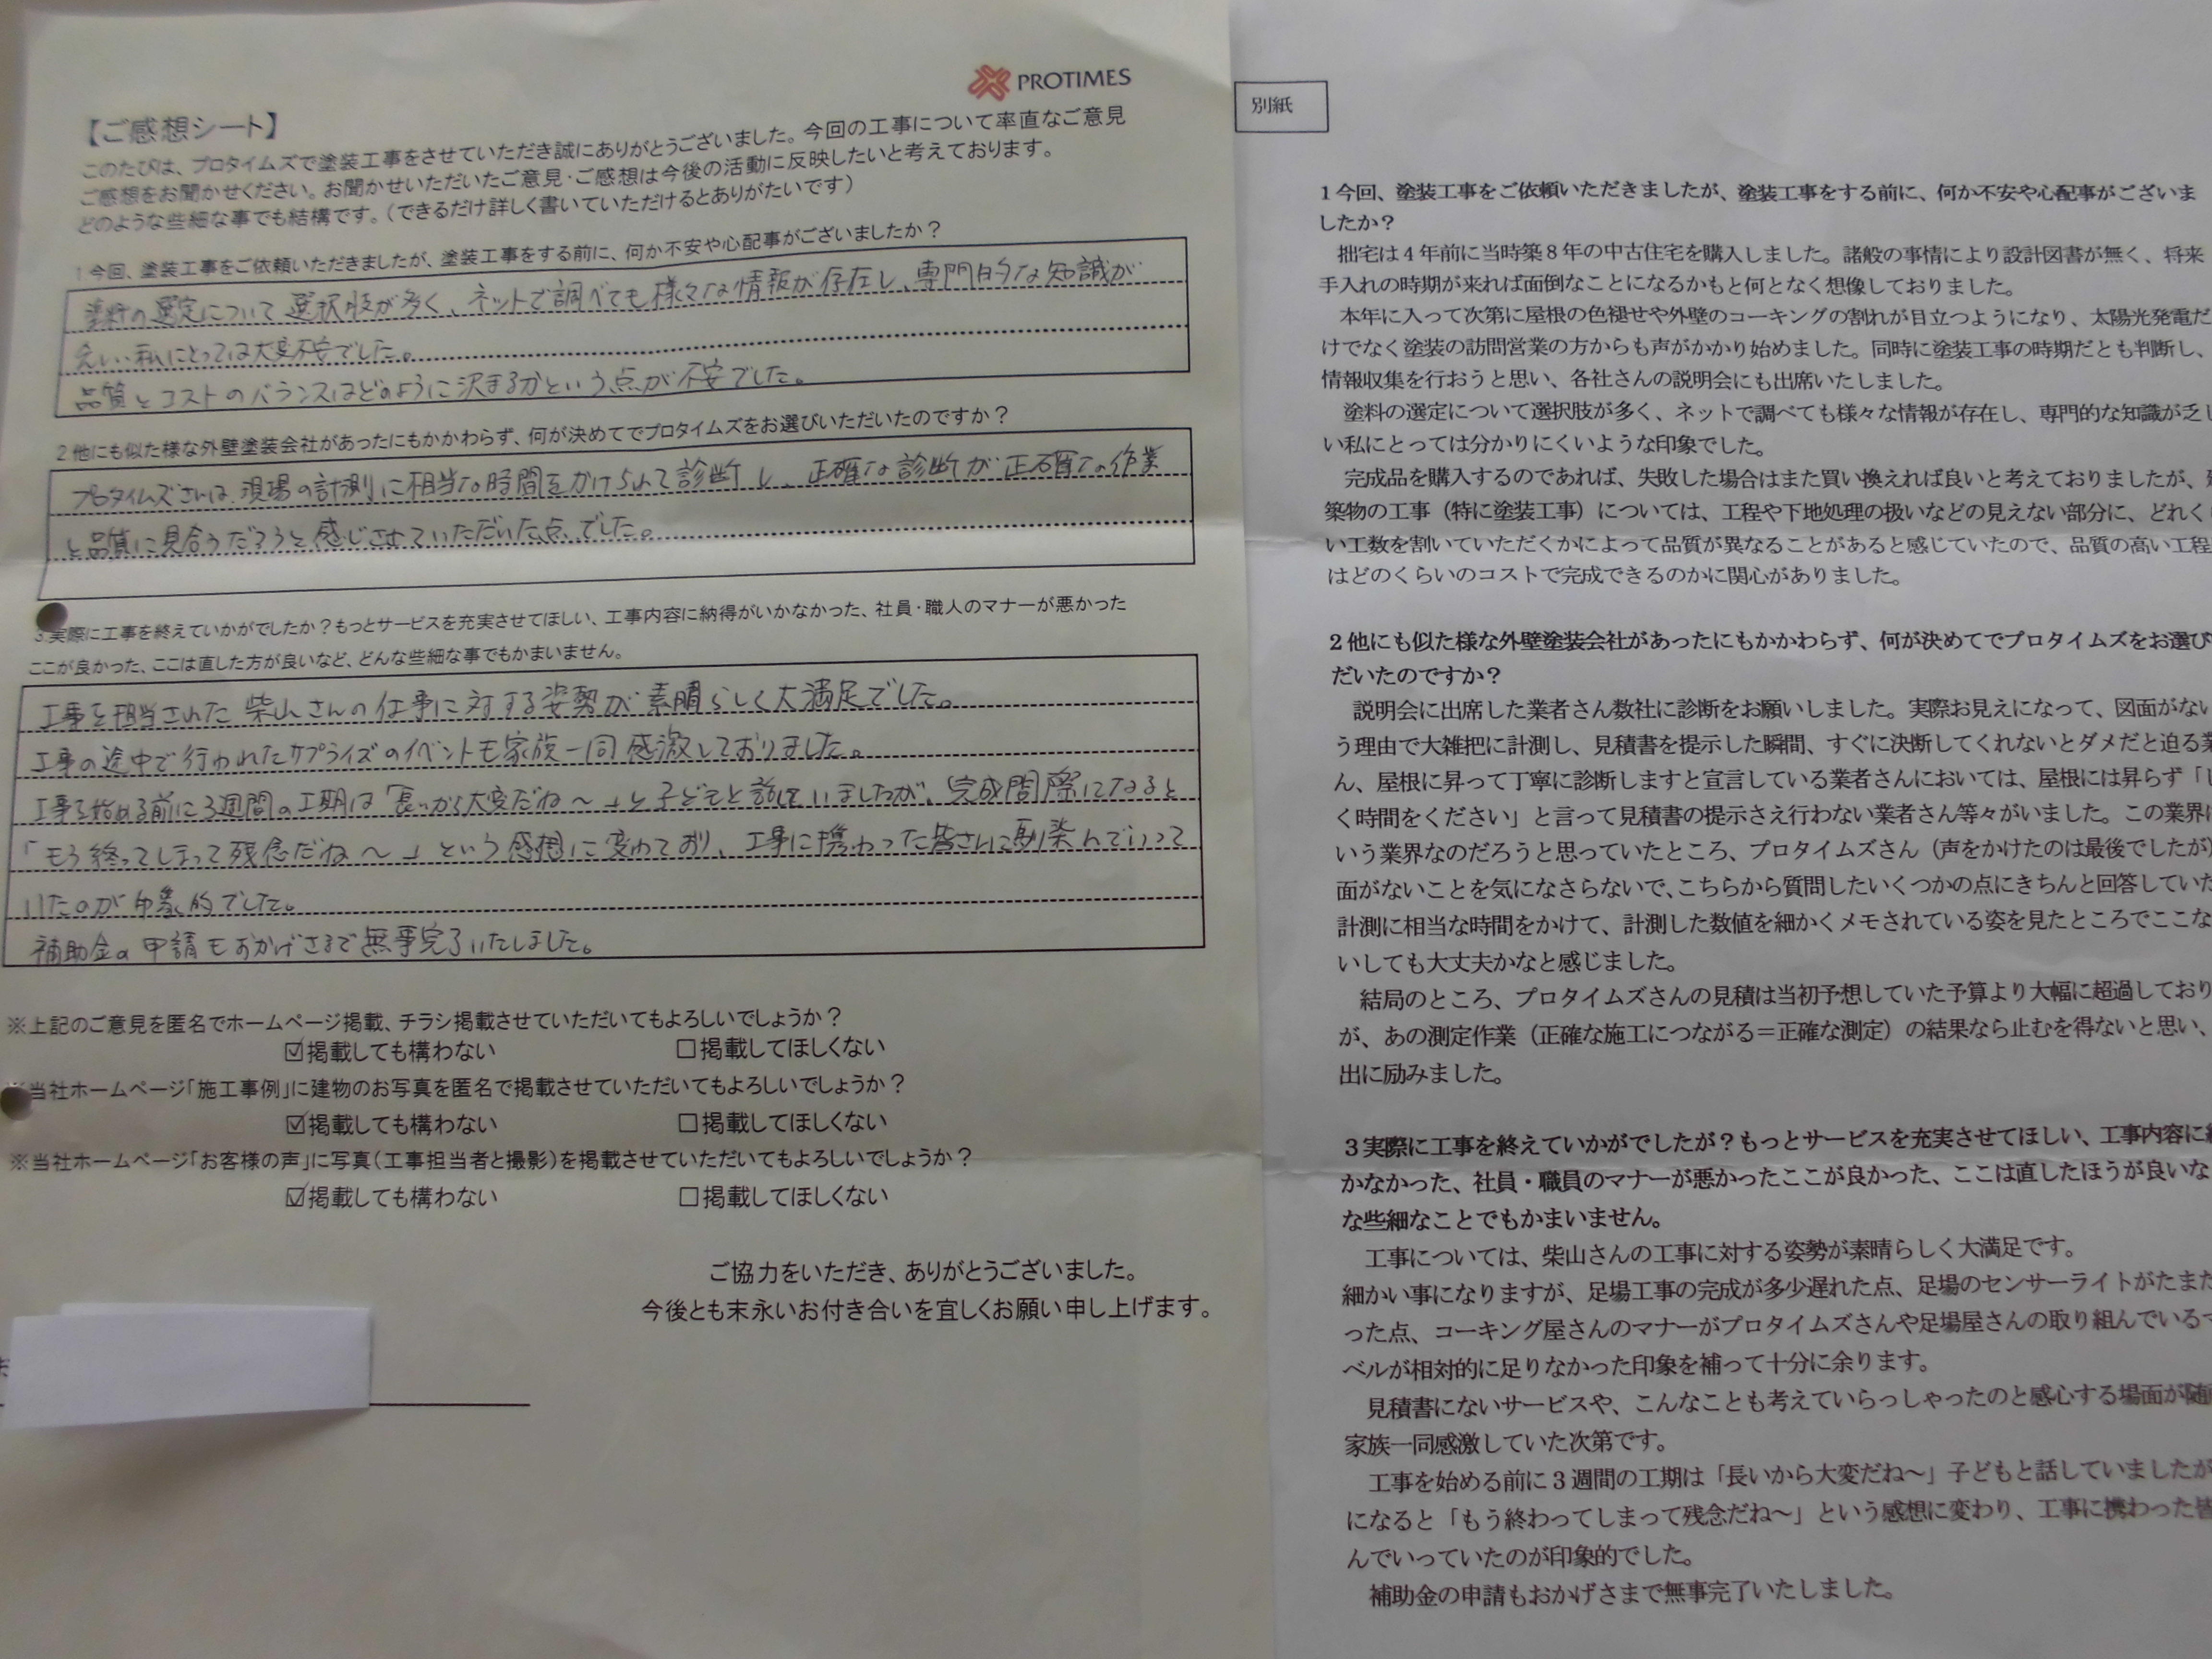 PROTIMES
【ご感想シート】
このたびは、プロタイムズで塗装工事をさせていただき誠にありがとうございました。今回の工事について率直なご意見
ご感想をお聞かせください。お聞かせいただいたご意見・ご感想は今後の活動に反映したいと考えております。
どのような些細な事でも結構です。(できるだけ詳しく書いていただけるとありがたいです)
1今回、塗装工事をご依頼いただきましたが、塗装工事をする前に、何か不安や心配事がございましたか?
塗料の選定について選択肢が多く、ネットで調べても様々な情報が存在し、専門的な知識が
乏しい私にとっては大変不安でした。
品質とコストのバランスはどのように決まるかという点が不安でした。
2他にも似た様な外壁塗装会社があったにもかかわらず、何が決めてでプロタイムズをお選びいただいたのですか?
プロタイムズさんは、現場の計測に相当な時間をかけられて診断し、正確な診断が正確な作業
と品質に見合うだろうと感じさせていただいた点でした。
3.実際に工事を終えていかがでしたか?もっとサービスを充実させてほしい、工事内容に納得がいかなかった、社員・職人のマナーが悪かった
ここが良かった、ここは直した方が良いなど、どんな些細な事でもかまいません。
工事を担当された柴山さんの仕事に対する姿勢が素晴らしく大満足でした。
工事の途中で行われたサプライズのイベントも家族一同感激しておりました。
工事を始める前に3週間の工期は「長いから大変だね～」と子どもと話していましたが、完成間際になると
「もう終ってしまって残念だね～」という感想に変わており、工事に携わった皆さんに馴染んでいって
いたのが印象的でした。
補助金の申請もおかげさまで無事完了いたしました。
※上記のご意見を匿名でホームページ掲載、チラシ掲載させていただいてもよろしいでしょうか?
☑掲載しても構わない □掲載してほしくない
※当社ホームページ「施工事例」に建物のお写真を匿名で掲載させていただいてもよろしいでしょうか?
☑掲載しても構わない □掲載してほしくない
※当社ホームページ「お客様の声」に写真(工事担当者と撮影)を掲載させていただいてもよろしいでしょうか?
☑掲載しても構わない □掲載してほしくない
ご協力をいただき、ありがとうございました。
今後とも末永いお付き合いを宜しくお願い申し上げます。
別紙
1今回、塗装工事をご依頼いただきましたが、塗装工事をする前に、何か不安や心配事がございま
したか?
拙宅は4年前に当時築8年の中古住宅を購入しました。諸般の事情により設計図書が無く、将来
手入れの時期が来れば面倒なことになるかもと何となく想像しておりました。
本年に入って次第に屋根の色褪せや外壁のコーキングの割れが目立つようになり、太陽光発電だ
けでなく塗装の訪問営業の方からも声がかかり始めました。同時に塗装工事の時期だとも判断し、
情報収集を行おうと思い、各社さんの説明会にも出席いたしました。
塗料の選定について選択肢が多く、ネットで調べても様々な情報が存在し、専門的な知識が乏し
い私にとっては分かりにくいような印象でした。
完成品を購入するのであれば、失敗した場合はまた買い換えれば良いと考えておりましたが、
築物の工事(特に塗装工事)については、工程や下地処理の扱いなどの見えない部分に、どれく
い工数を割いていただくかによって品質が異なることがあると感じていたので、品質の高い工程
はどのくらいのコストで完成できるのかに関心がありました。
2他にも似た様な外壁塗装会社があったにもかかわらず、何が決めてでプロタイムズをお選び
だいたのですか?
説明会に出席した業者さん数社に診断をお願いしました。実際お見えになって、図面がない
う理由で大雑把に計測し、見積書を提示した瞬間、すぐに決断してくれないとダメだと迫る
ん、屋根に昇って丁寧に診断しますと宣言している業者さんにおいては、屋根には昇らず「し
く時間をください」と言って見積書の提示さえ行わない業者さん等々がいました。この業界は
いう業界なのだろうと思っていたところ、プロタイムズさん(声をかけたのは最後でしたが)
面がないことを気になさらないで、こちらから質問したいくつかの点にきちんと回答していた
計測に相当な時間をかけて、計測した数値を細かくメモされている姿を見たところでここな
いしても大丈夫かなと感じました。
結局のところ、プロタイムズさんの見積は当初予想していた予算より大幅に超過しており
が、あの測定作業(正確な施工につながる=正確な測定)の結果なら止むを得ないと思い、
出に励みました。
3実際に工事を終えていかがでしたが?もっとサービスを充実させてほしい、工事内容に
かなかった、社員・職員のマナーが悪かったここが良かった、ここは直したほうが良いな
な些細なことでもかまいません。
工事については、柴山さんの工事に対する姿勢が素晴らしく大満足です。
細かい事になりますが、足場工事の完成が多少遅れた点、足場のセンサーライトがたまた
った点、コーキング屋さんのマナーがプロタイムズさんや足場屋さんの取り組んでいるマ
ベルが相対的に足りなかった印象を補って十分に余ります。
見積書にないサービスや、こんなことも考えていらっしゃったのと感心する場面が随
家族一同感激していた次第です。
工事を始める前に3週間の工期は「長いから大変だね～」子どもと話していましたが
になると「もう終わってしまって残念だね～」という感想に変わり、工事に携わった皆
んでいっていたのが印象的でした。
補助金の申請もおかげさまで無事完了いたしました。